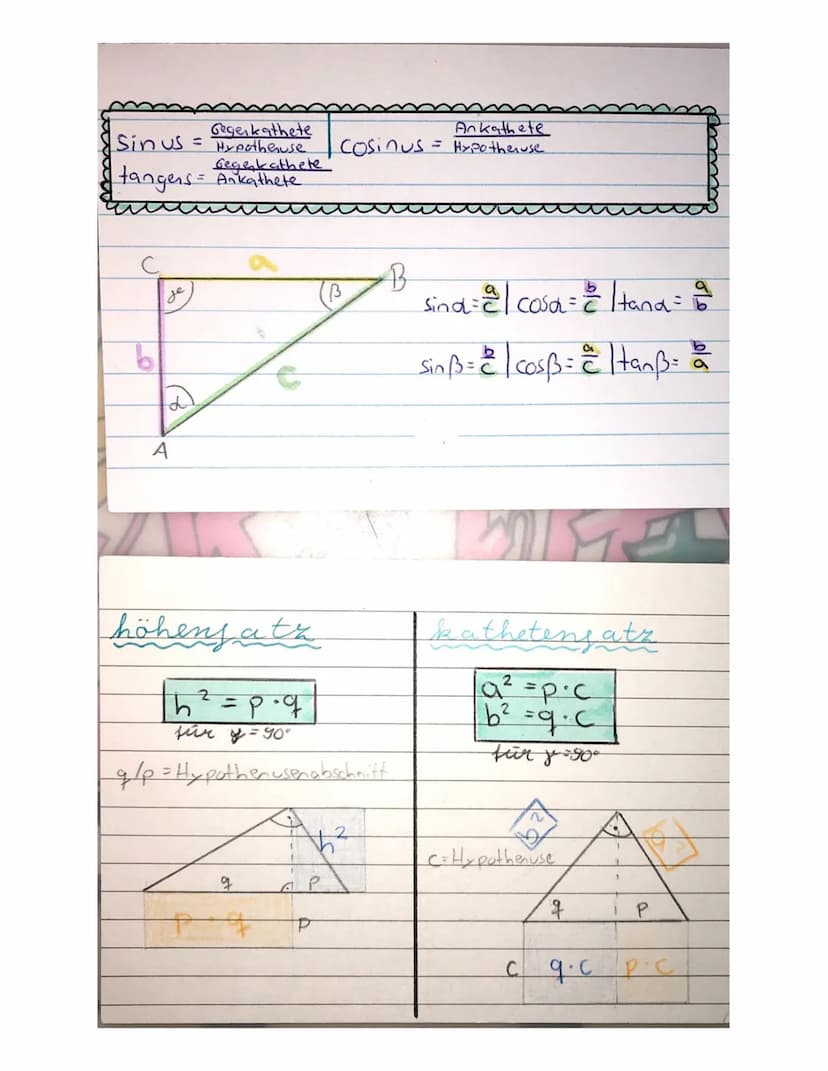 sinus = Gegenkathete / Hypothenuse | cosinus = Ankathete / Hypothenuse
tangens = Gegenkathete / Ankathete
C a B
γ β
b c
α
A
sinα = a/c | cosα = b/c | tanα = a/b
sinβ = b/c | cosβ = a/c | tanβ = b/a
höhensatz
h² = p · q
für γ = 90°
q/p = Hypothenusenabschnitt
h²
q p
p · q p
kathetensatz
a² = p · c
b² = q · c
für γ = 90°
b² a²
c = Hypothenuse
q p
c q · c p · c